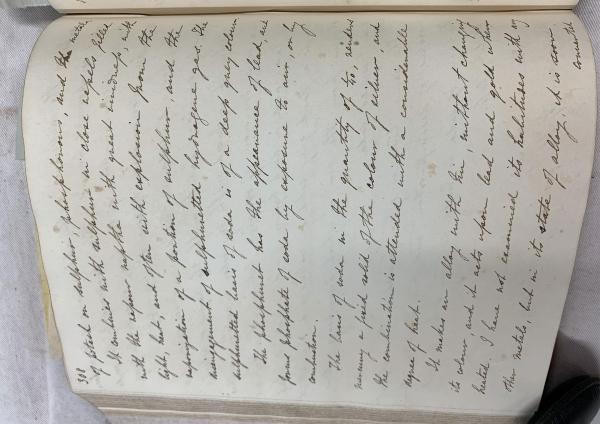 398
of potash on sulphur, phosphorus, and the metals
It combines with sulphur in close vessels filled
with the vapour of naptha with great vividness, with
light, heat, and often with explosion from the
vaporization of a portion of sulphur, and the
disengagement of sulphuretted hydrogene gas. The
sulphuretted basis of soda is of a deep grey colour
The phosphuret has the appearance of lead and
forms phosphate of soda by exposure to air, or by
combustion.
The basis of soda in the quantity of 1/40 renders
mercury a fixed solid of the colour of silver, and
the combination is attended with a considerable
degree of heat.
It makes an alloy with tin, without changing
its colour and it acts upon lead and gold when
heated. I have not examined its habitudes with any
other metals, but in its state of alloy, it is soon
converted